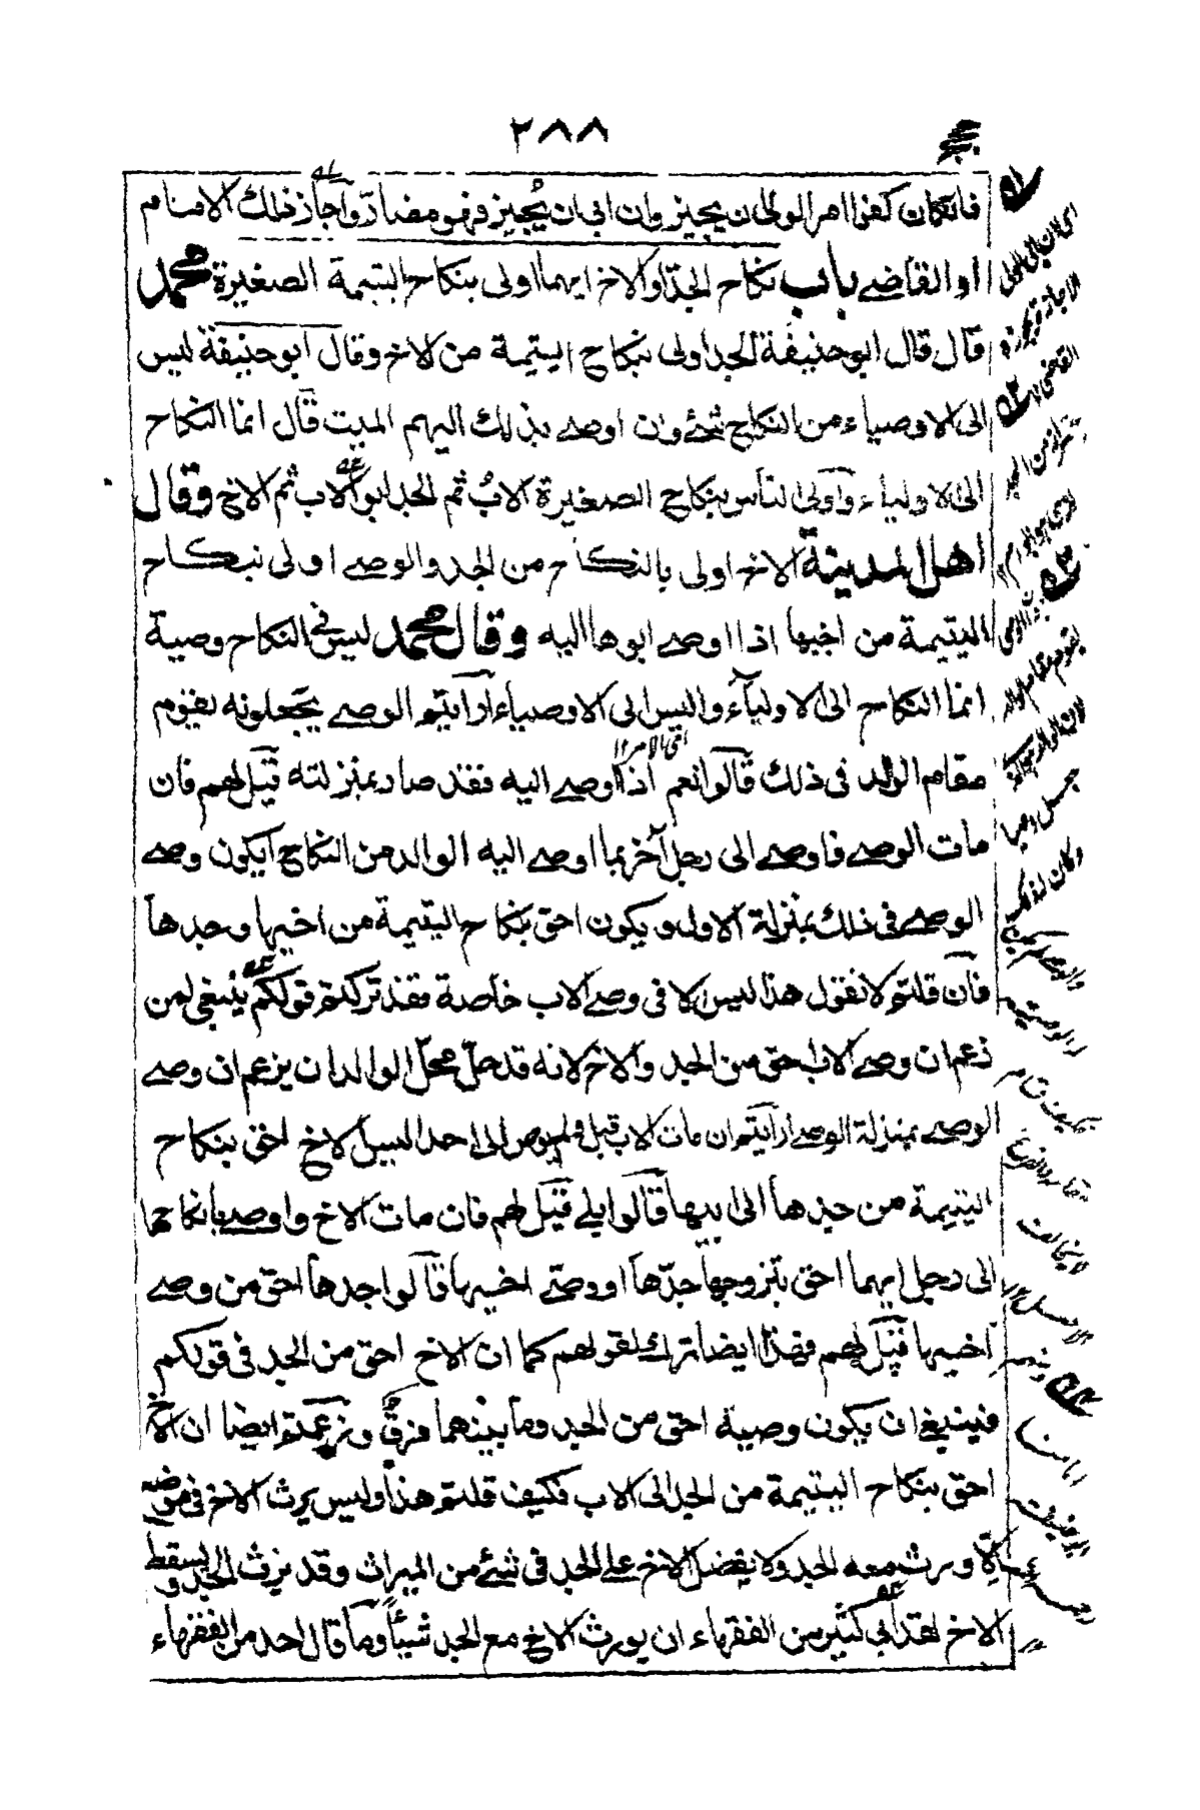 ٢٨٨
فان كان كفوا امر الولى ان يجيز وان ابى ان يجيز فهو مضار واجاز ذلك الامام
او القاضے باب نكاح الجد او الاخ ايهما اولى بنكاح اليتيمة الصغيرة محمد
قال قال ابو حنيفة الجد اولى بنكاح اليتيمة من الاخ وقال ابو حنيفة ليس
الى الاوصياء من النكاح شئے وان اوصے بذلك اليهم الميت قال انما النكاح
الى الاولياء واولى الناس بنكاح الصغيرة الاب ثم الجد ابو الاب ثم الاخ وقال
اهل المدينة الاخ اولى بالنكاح من الجد والوصے اولى بنكاح
اليتيمة من اخيها اذا اوصے ابوها اليه وقال محمد ليس فى النكاح وصية
انما النكاح الى الاولياء وليس الى الاوصياء ارايتم الوصے يجعلونه يقوم
مقام الوالد فى ذلك قالوا نعم اذا اوصے اليه فقد صار بمنزلته قيل لهم فان
مات الوصے فاوصے الى رجل آخر بما اوصے اليه الوالد من النكاح ايكون وصے
الوصے فى ذلك بمنزلة الاول ويكون احق بنكاح اليتيمة من اخيها وجدها
فان قلتم لا نقول هذا ليس الا فى وصے الاب خاصة فقد تركتم قولكم ينبغى لمن
زعم ان وصے الاب احق من الجد والاخ لانه قد حل محل الوالد ان يزعم ان وصے
الوصے بمنزلة الوصے ارايتم ان مات الاب قبل ولم يوص الى احد اليس الاخ احق بنكاح
اليتيمة من جدها ابى ابيها قالوا بلے قيل لهم فان مات الاخ واوصے بانكاحها
الى رجل ايهما احق بتزوجها جدها او وصے اخيها قالوا جدها احق من وصے
اخيها قيل لهم فهذا ايضا ترك لقولهم كما ان الاخ احق من الجد فى قولكم
فينبغے ان يكون وصيه احق من الجد وما بينهما فرق وزعمتم ايضا ان الاخ
احق بنكاح اليتيمة من الجد ابى الاب فكيف قلتم هذا وليس يرث الاخ فى موضع
الا ورث معه الجد ولا يفضل الاخ على الجد فى شئے من الميراث وقد يرث الجد ويسقط
الاخ لقد ابى كثير من الفقهاء ان يورث الاخ مع الجد شيئا وما قال احد من الفقهاء